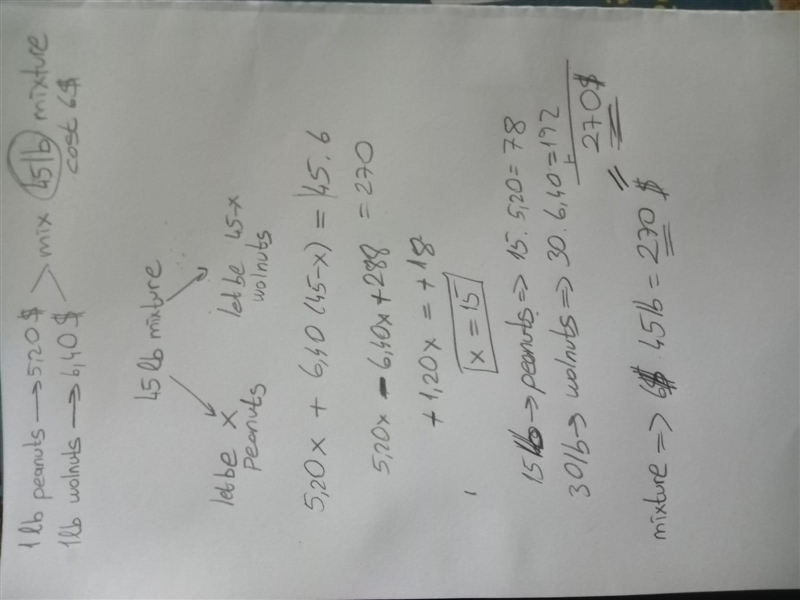 1 lb peanuts → 5,20 $
1 lb walnuts → 6,40 $ > mix 45 lb mixture
cost 6$
45 lb mixture
let be x
peanuts
let be 45-x
walnuts
5,20x + 6,40 (45-x) = 45.6
5,20x - 6,40x + 288 = 270
+ 1,20x = + 18
x = 15
15 lb → peanuts => 15. 5,20 = 78
30 lb → walnuts => 30. 6,40 = 192
+
270 $
mixture => 6$ .45 lb = 270 $